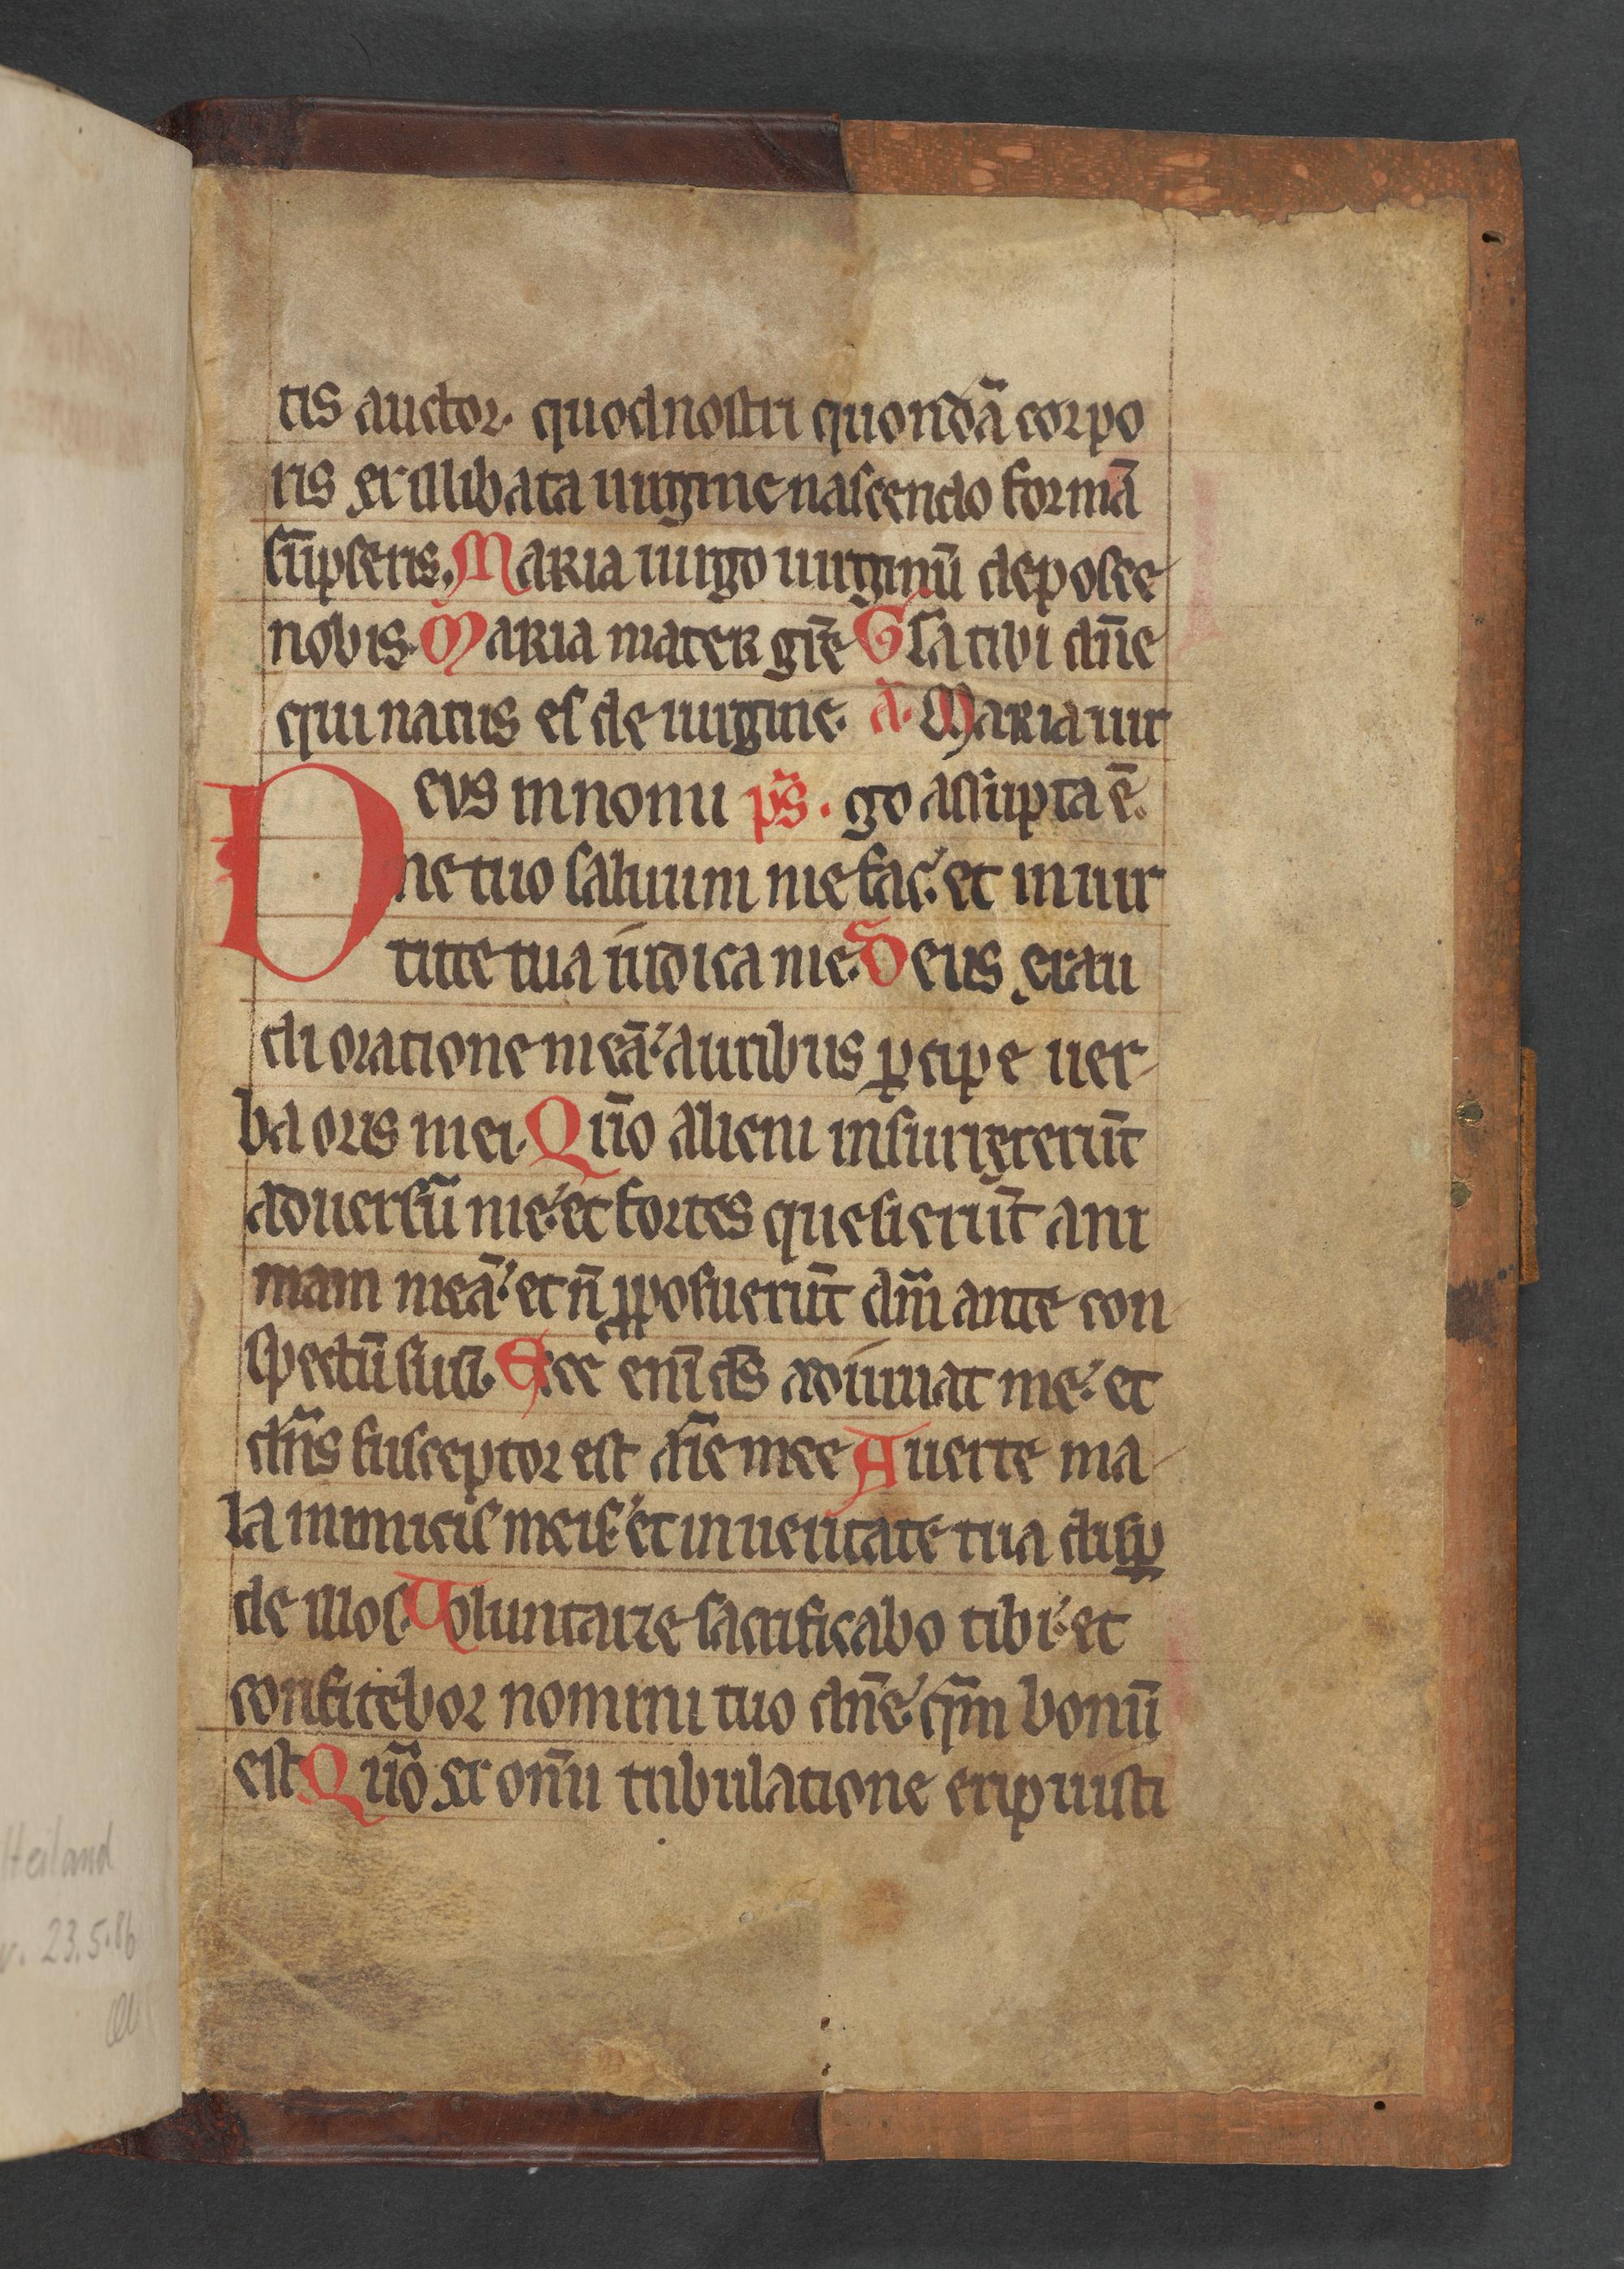 tis auctor. quod nostri quondā corpo
ris ex illibata uirgine nascendo formā
sūpseris. Maria uirgo uirginū deposce
nobis. Maria mater grē Gl̄a tibi dn̄e
qui natus es de uirgine. a̅. Maria uir
Deus in nomi ps̄. go assūpta ē.
ne tuo saluum me fac. et in uir
tute tua iudica me. Deus exau
di oratione meā. auribus ꝑcipe uer
ba oris mei. Qūo alieni insurrexerūt
aduersū me. et fortes quesierūt ani
mam meā. et n̄ ꝓposuerūt dm̄ ante con
spectū suū. Ecce eni̅ ds̄ adiuuat me. et
dn̄s susceptor est an̄e mee Auerte ma
la inimicis meis. et in ueritate tua disꝑ
de illos. Voluntarie sacrificabo tibi. et
confitebor nomini tuo dn̄e. qm̄ bonū
est Qūo ex om̄i tribulatione eripuisti
Heiland
23.5.86